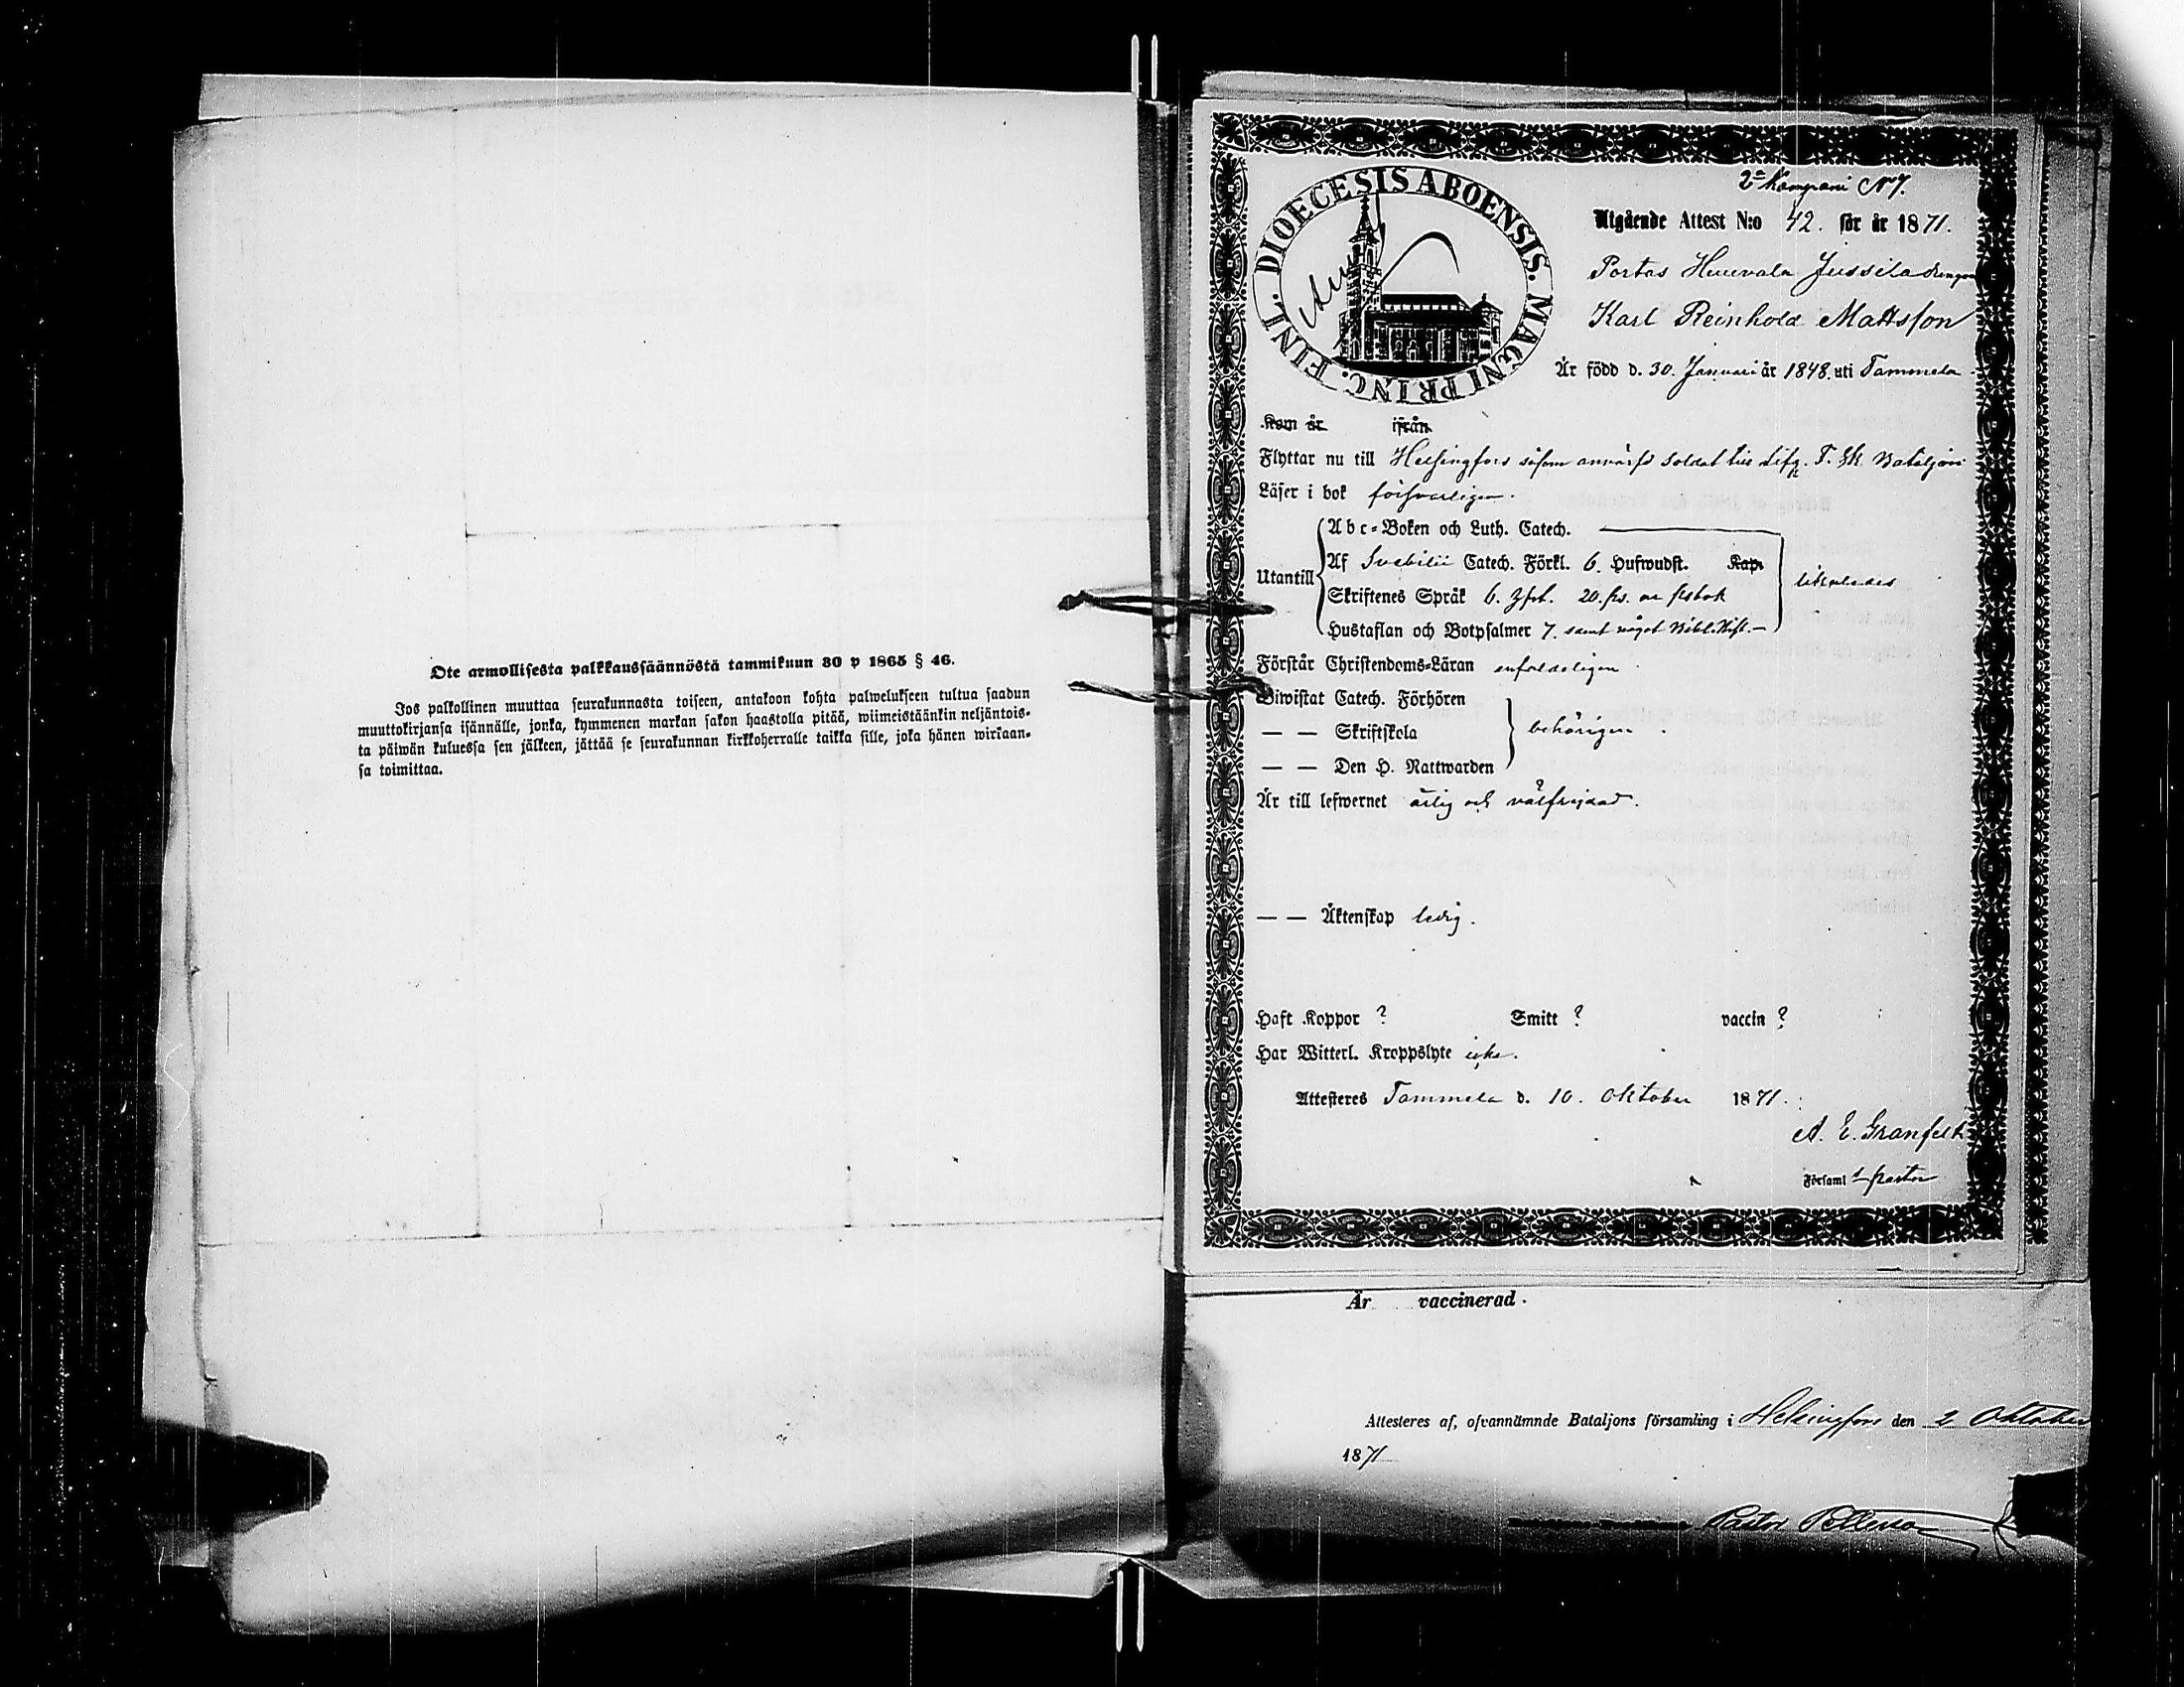 Ote armollisesta palkkaussäännöstä tammikuun 30 p 1865 § 46.
Jos palkollinen muuttaa seurakunnasta toiseen, antakoon kohta palwelukseen tultua saadun
muuttokirjansa isännälle, jonka, kymmenen markan sakon haastolla pitää, wiimeistäänkin neljäntois-
ta päiwän kuluessa sen jälkeen, jättää se seurakunnan kirkkoherralle taikka sille, joka hänen wirkaan-
sa toimittaa.
2a Kompani No 7.
DIOECESIS ABOENSIS. MAGNI PRINC. FINL.
Utgående Attest N:o 42. för år 1871.
Portas Jussila drengen
Karl Reinhold Mattsson
Är född d. 30. Januari år 1848. uti Tammela.
Kom år ifrån
Flyttar nu till Helsingfors såsom anvärfd soldat till Lifg. F. Sk. Bataljon
Läser i bok försvarligen.
Utantill
Abc-Boken och Luth. Catech.
Af Svebilii Catech. Förkl. 6. Hufwudst. Kap.
Skriftenes Språk 6.
likaledes
Hustaflan och Botpsalmer 7. samt något Bibl. Hist.
Förstår Christendoms-Läran enfaldeligen
Biwistat Catech. Förhören
— — Skriftskola
behörigen.
— — Den H. Nattwarden
Är till lefwernet ärlig och välfrejdad.
— — Äktenskap ledig.
Haft Koppor ? Smitt ? vaccin ?
Har Witterl. Kroppslyte icke.
Attesteres Tammela d. 10. Oktober 1871.
A. E. Granfelt
Församl pastor
Är vaccinerad.
Attesteres af, ofvannämnde Bataljons församling i Helsingfors den 2 Oktober
1871
Pastor